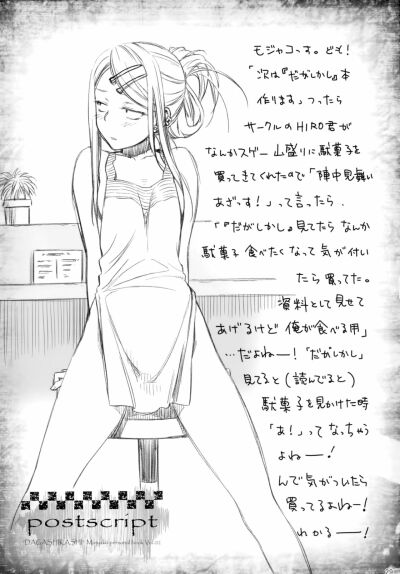 モジャコっす。ども!
「次は『だがしかし』本
作ります」つったら
サークルのHIRO君が
なんかスゲー山盛りに駄菓子を
買ってきてくれたので「陣中見舞い
あざっす!」って言ったら、
「『だがしかし』見てたらなんか
駄菓子食べたくなって気が付い
たら買ってた。
資料として見せて
あげるけど俺が食べる用」
…だよねー!『だがしかし』
見てると(読んでると)
駄菓子を見かけた時
「あ!」ってなっちゃう
よねー!
んで気がついたら
買ってるよねー!
わかるー!
postscript
DAGASHIKASHI